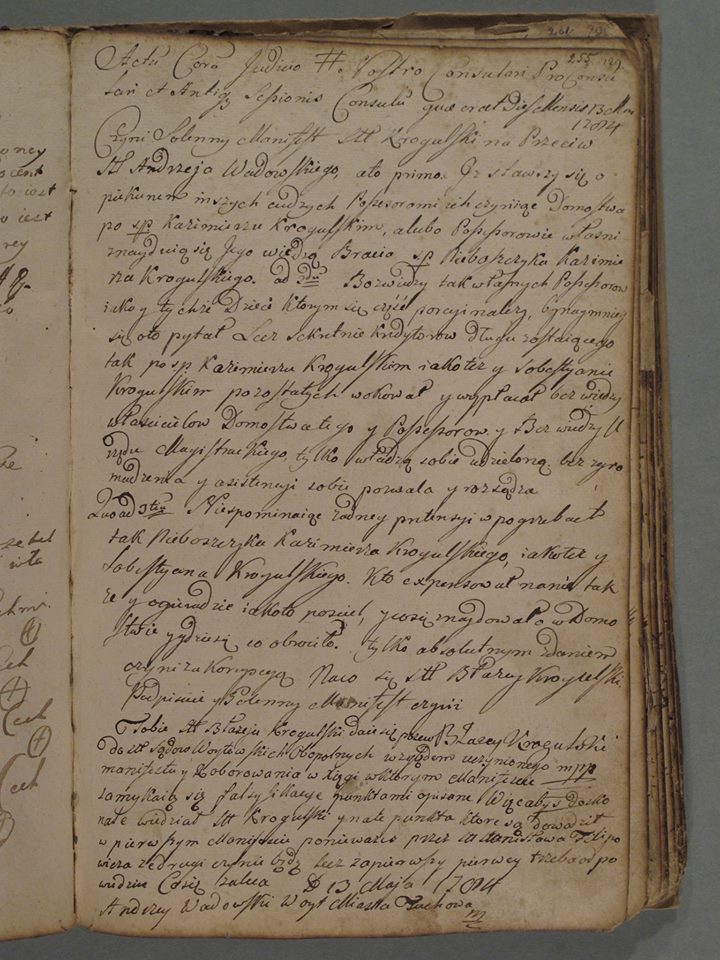 255
Actū Corā Judicio # Nostro Consulari Proconsu
lari et Antiq Sessionis Consulū quæ erat Die Mensis 13 Maii
1784
Czyni Solenny Manifest Stł Krogulski na Przeciw
Stł Andrzeja Wadowskiego, ato primo. Iz stawszy się o
piekunem inszych cudzych Possesorami ich czyniąc Domostwa
po sp Kazimierzu Krogulskim, alubo Possessorowie własni
znayduią się Jego wiedzą Bracia sp Nieboszczyka Kazimie
rza Krogulskiego. ad 2dū Bez wiedzy tak własnych Possessorow
iako y tychze Dzieci ktorym się część porcyi nalezy, bynaymniey
się oto pytał Lecz sekretnie kredytorow długu zostaiącego
tak po sp Kazimierzu Krogulskim iakotez y Sobestyanie
Krogulskim pozostałych wokował y wypłacał bez wiedzy
własciciel​ow Domostwa tego y Possessorow y Bez wiedzy U
rzędu Magistrackiego, tylko władzą sobie udzieloną, bez zgro
madzenia y asistencyi sobie pozwala y rozsądza
ad 3tiū Niespominaiąc zadney pretensyi w pogrzebach
tak Nieboszczyka Kazimierza Krogulskiego, iakotez y
Sobestyana Krogulskiego. Kto expensował nanie tak
ze y ogieradzie iakoto posciel, y cosię znaydowało w Domo
stwie y gdziesię co obrociło. tylko absolutnym zdaniem
czyni za Korupcyą Naco się Stł Błazey Krogulski
Podpisuie y Solenny Manifest czyni
Błazey Krogulski
mpp
Tobie Stł Błazeju Krogulski daie się
do Stł Sądow Woytowskich Obopolnych względem uczynionego
manifestu y Zoborowania w Xięgi wktorym Manifescie
zamykaią się falszy kilkąc punktami opisane Więc abys Dosko
nale wiedział Stł Krogulski y nate punkta ktore są dowodził
w pierwszym Manifescie poniewazes przez Stł Stanisława Filipo
wicza ze drugi czynic będz lecz zapierwszy pierwey trzeba odpo
wiedziec Cosię zaleca D 13 Maja 1784
Andrzey Wadowski Woyt Miasta Tuchowa